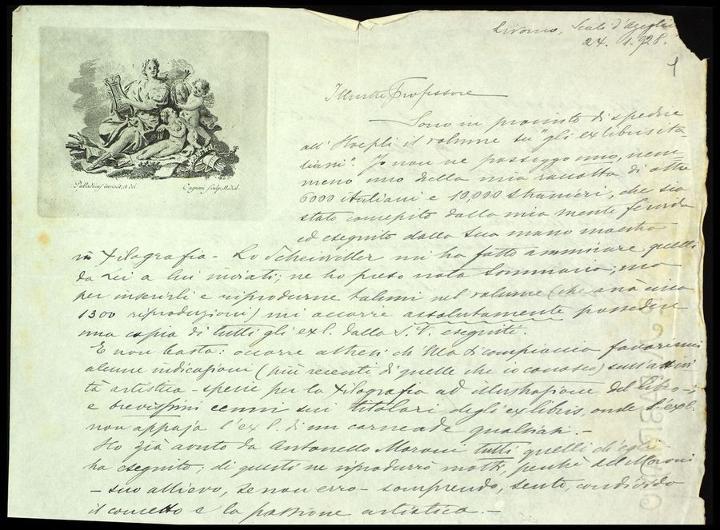 Livorno, Scali d'Azeglio
24. 1. 928.
1
Illustre Professore
Sono in procinto di spedire
all'Hoepli il volume su "gli ex libris ita
liani". Io non ne posseggo uno, nem
meno uno della mia raccolta di oltre
6000 italiani e 19,000 stranieri, che sia
stato concepito dalla mia mente fervida
ed eseguito dalla sua mano maestra
in Xilografia - Lo Scheiwiller mi ha fatto ammirare quelli
da Lei a lui inviati; ne ho preso nota sommaria; ma
per inserirli e riprodurne taluni nel volume (che avrà circa
1300 reproduzioni) mi occorre assolutamente possedere
una copia di tutti gli exl. dalla S. V. eseguiti.
E non basta: occorre altresì ch'Ella si compiaccia favorirmi
alcune indicazioni (più recenti di quelle che io conosco) sull'attivi
tà artistica - specie per la Xilografia ad illustrazione del libro -
e brevissimi cenni sui titolari degli exlibris onde l'exl.
non appaja l'ex l. di un carneade qualsiasi. -
Ho già avuto da Antonello Moroni tutti quelli ch'egli
ha eseguito; di questi ne riprodurrò molti, perchè del Moroni
- suo allievo, se non erro - comprendo, sento, condivido
il concetto e la passione artistica. -